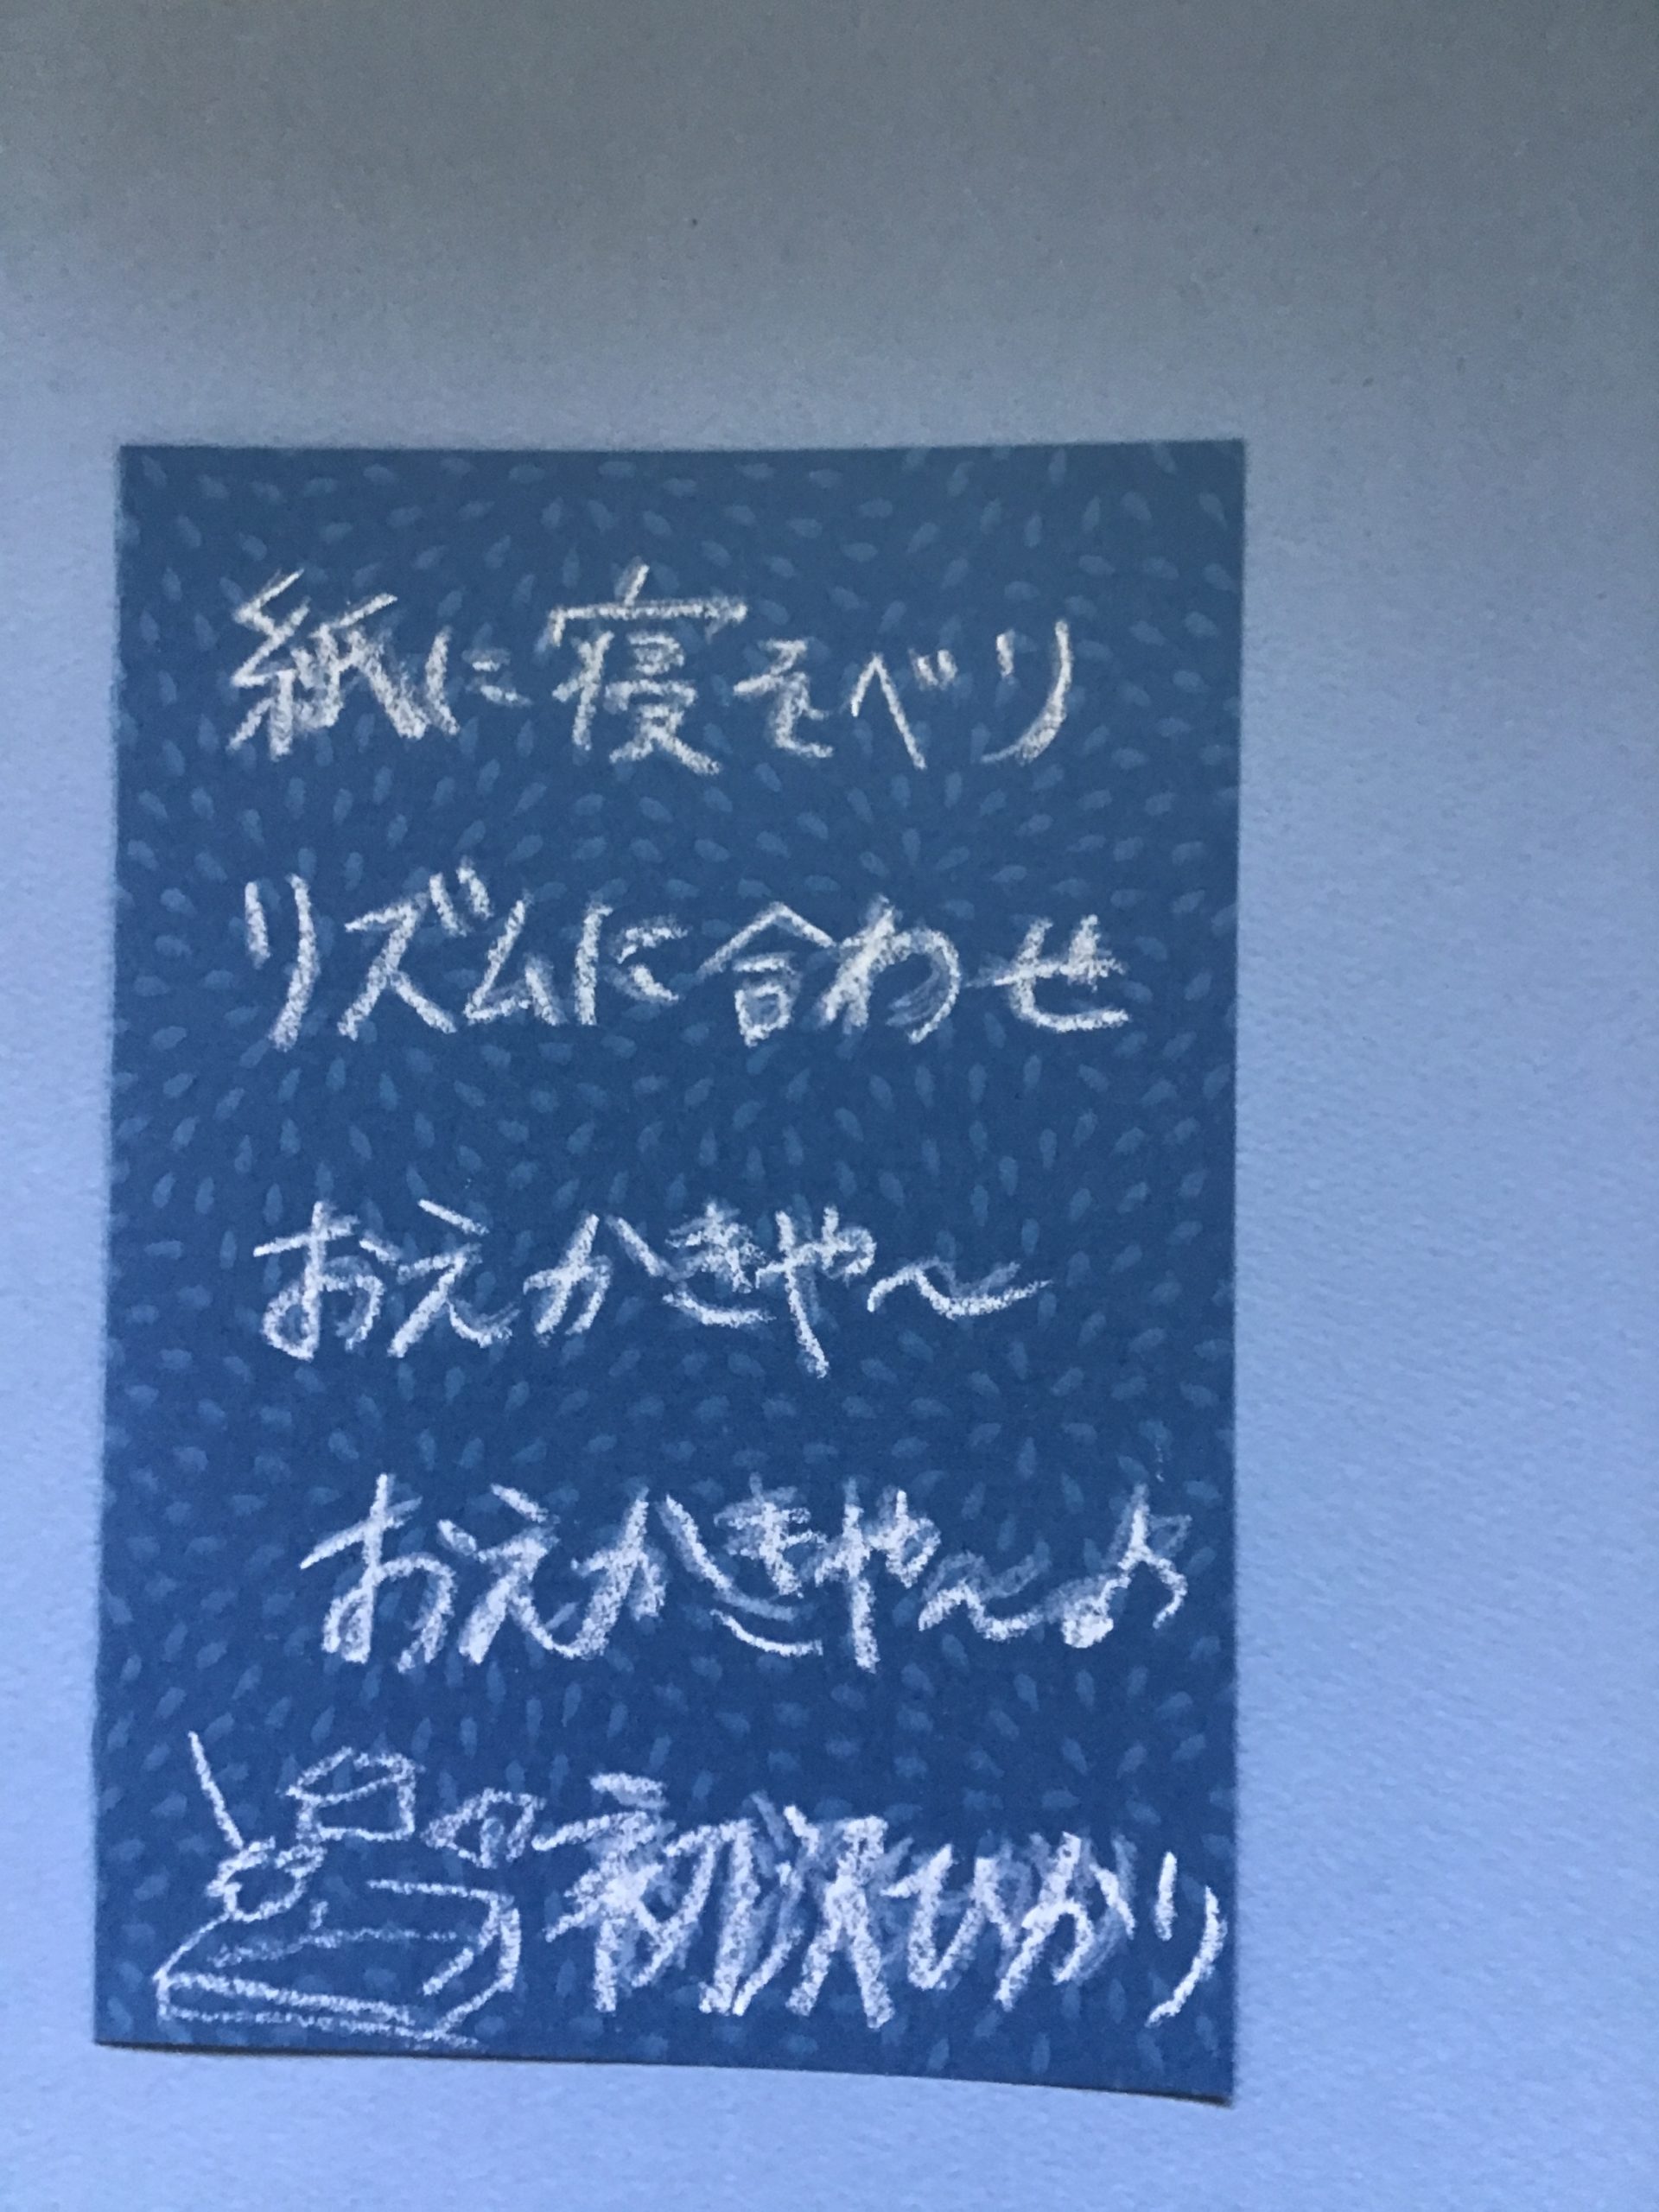 紙に寝そべり
リズムに合わせ
おえかきや〜
おえかきや〜♪
ひかり